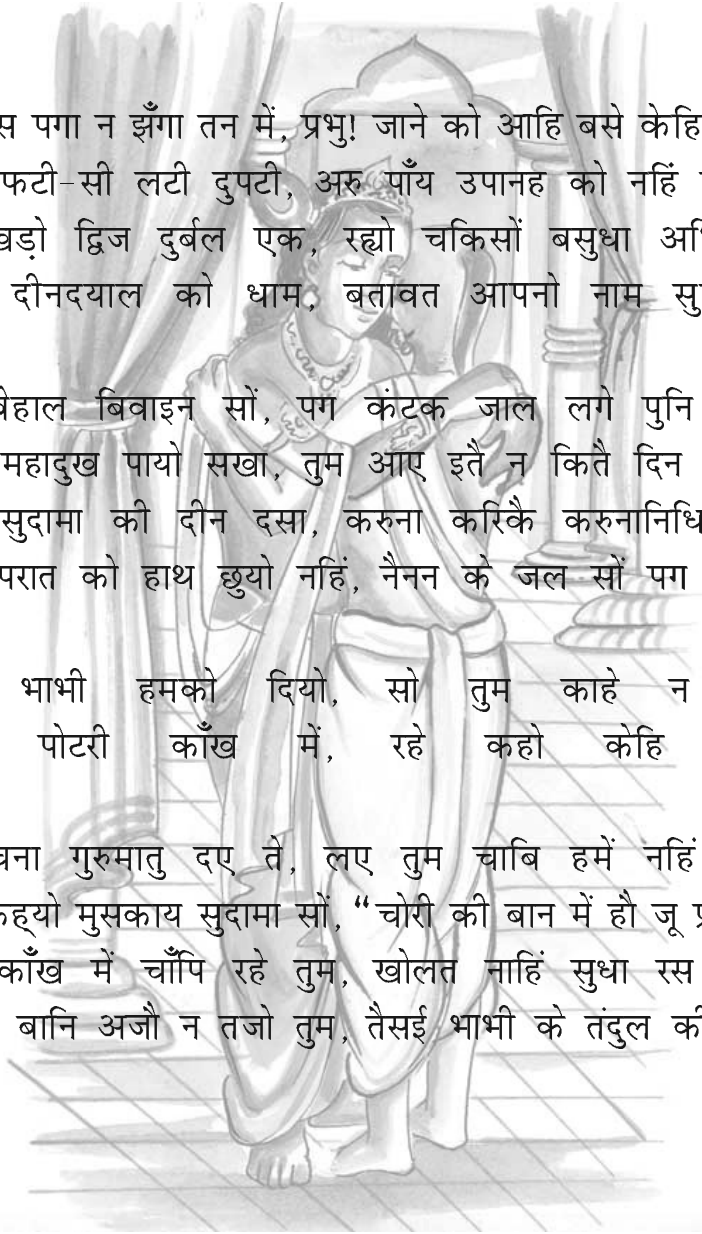 स पगा न झँगा तन में, प्रभु! जाने को आहि बसे केहि
फटी-सी लटी दुपटी, अरु पाँय उपानह को नहिं
खड़ो द्विज दुर्बल एक, रह्यो चकिसों बसुधा अभि
दीनदयाल को धाम, बतावत आपनो नाम सु
बेहाल बिवाइन सों, पग कंटक जाल लगे पुनि
महादुख पायो सखा, तुम आए इतै न कितै दिन
सुदामा की दीन दसा, करुना करिकै करुनानिधि
परात को हाथ छुयो नहिं, नैनन के जल सों पग
भाभी हमको दियो, सो तुम काहे न
पोटरी काँख में, रहे कहो केहि
चना गुरुमातु दए ते, लए तुम चाबि हमें नहिं
कह्यो मुसकाय सुदामा सों, “चोरी की बान में हौ जू प्र
काँख में चाँपि रहे तुम, खोलत नाहिं सुधा रस
बानि अजौ न तजो तुम, तैसई भाभी के तंदुल की